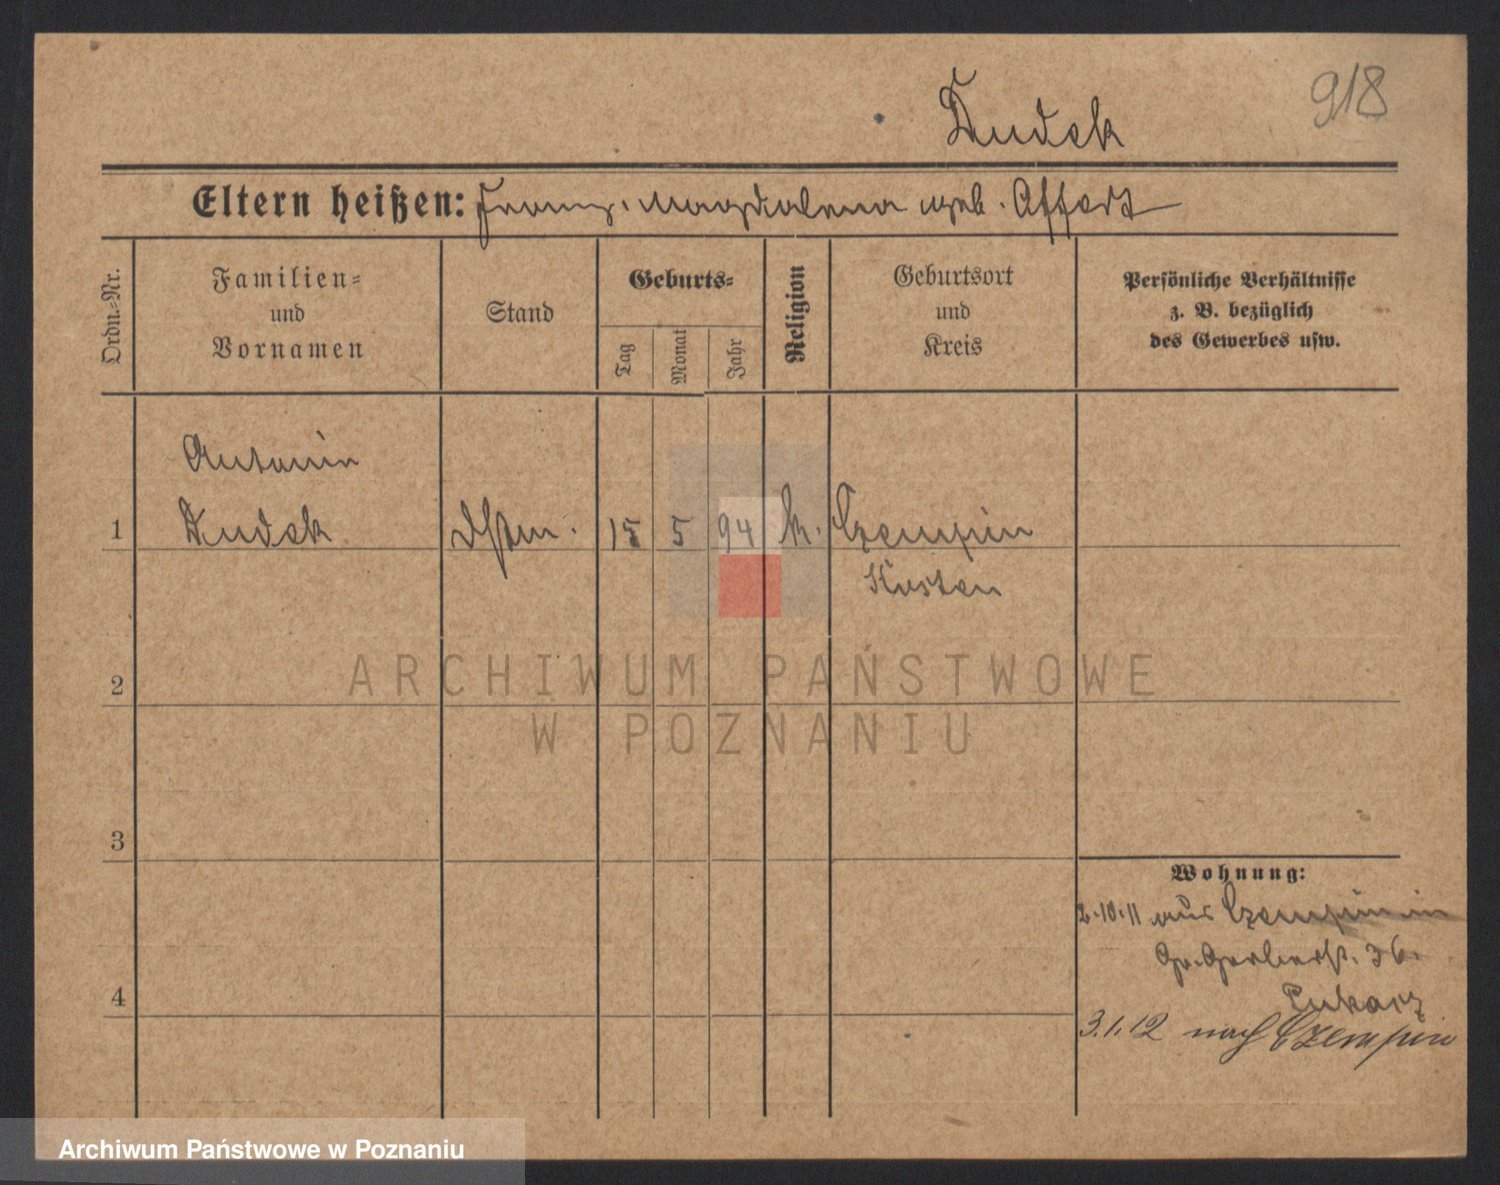 918
Dudek
Eltern heißen: Franz. Magdalena geb. Affert
Ordn.-Nr.
Familien-
und
Vornamen
Stand
Geburts-
Tag
Monat
Jahr
Religion
Geburtsort
und
Kreis
Persönliche Verhältnisse
z. B. bezüglich
des Gewerbes usw.
Antonin
1 Dudek Dstm. 15 5 94 k. Czempin
Kosten
2
3
4
Wohnung:
2.10.11 aus Czempin in
Gr. Gerberst. 36.
3.1.12 nach Czempin
ARCHIWUM PAŃSTWOWE
W POZNANIU
Archiwum Państwowe w Poznaniu